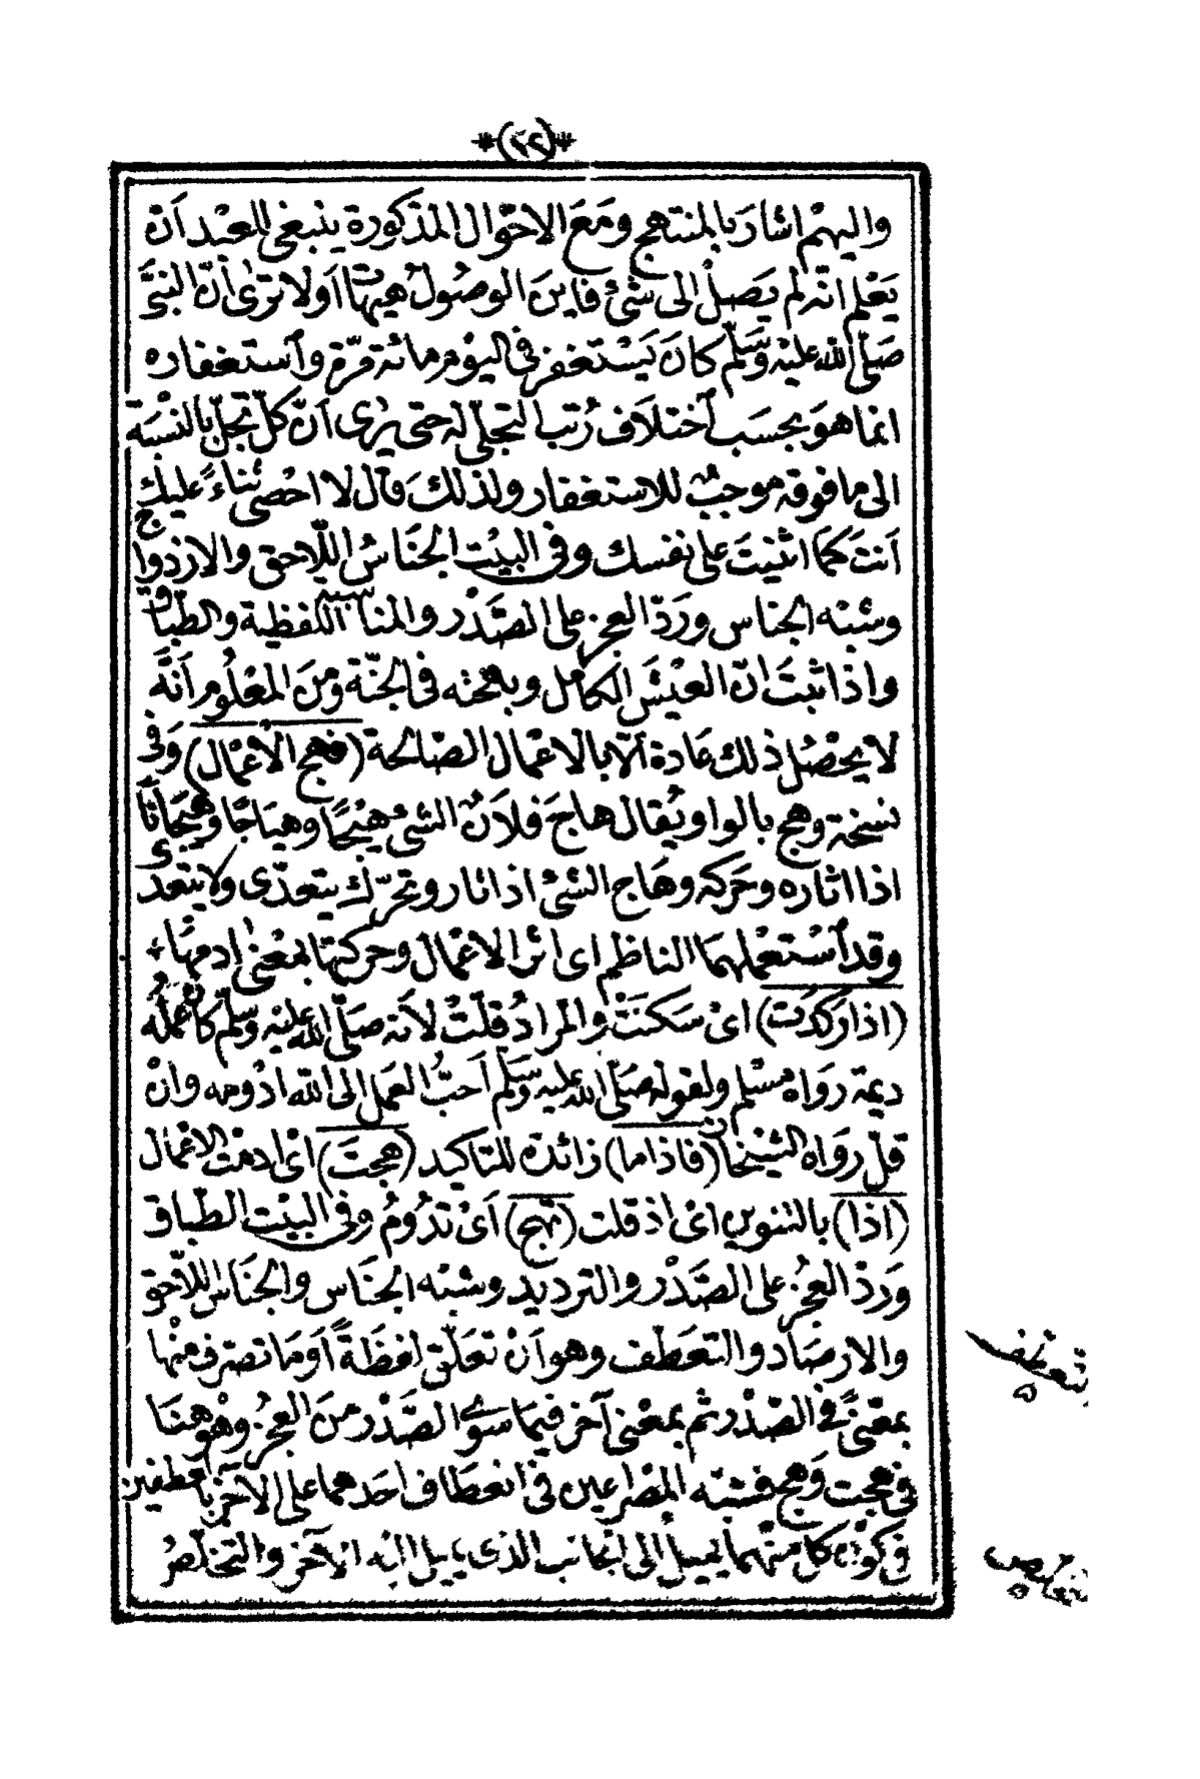 *(٢٢)*
واليهم اشار بالمنتهج ومع الاحوال المذكورة ينبغى للعبد أن
يعلم انه لم يصل الى شئ فاين الوصول هيهات اولا ترى أن النبي
صلى الله عليه وسلم كان يستغفر فى اليوم مائة مرة واستغفاره
انما هو بحسب اختلاف رتب التجلى له حتى يرى ان كل تجل بالنسبة
الى ما فوقه موجب للاستغفار ولذلك قال لا احصى ثناء عليك
انت كما اثنيت على نفسك وفى البيت الجناس اللاحق والازدواج
وشبه الجناس ورد العجز على الصدر والمناسبة اللفظية والطباق
واذا ثبت ان العيش الكامل وبهجته فى الجنة ومن المعلوم أنه
لا يحصل ذلك عادة الا بالاعمال الصالحة (فهج الأعمال) وفى
نسخة وهج بالواو ويقال هاج فلان الشئ هيجا وهياجا وهيجانا
اذا اثاره وحركه وهاج الشئ اذا ثار وتحرك يتعدى ولا يتعدى
وقد استعملهما الناظم اى اثر الاعمال وحركتها بمعنى ادمها
(اذا ركدت) اى سكنت والمراد قلت لأنه صلى الله عليه وسلم كان عمله
ديمة رواه مسلم ولقوله صلى الله عليه وسلم أحب العمل الى الله ادومه وان
قل رواه الشيخان (فاذا ما) زائدة للتاكيد (هجت) اى ادمت الاعمال
(اذا) بالتنوين اى اذ قلت (تهج) أى تدوم وفى البيت الطباق
ورد العجز على الصدر والترديد وشبه الجناس والجناس اللاحق
والارصاد والتعطف وهو أن تعلق لفظة أو ما تصرف منها
بمعنى فى الصدر ثم بمعنى آخر فيما سوى الصدر من العجز وهو هنا
فى هجت وهج فشبه المصراعين فى انعطاف احدهما على الآخر بالعطفين
فى كون كل منهما يميل الى الجانب الذى يميل اليه الآخر والتخلص
تعطف